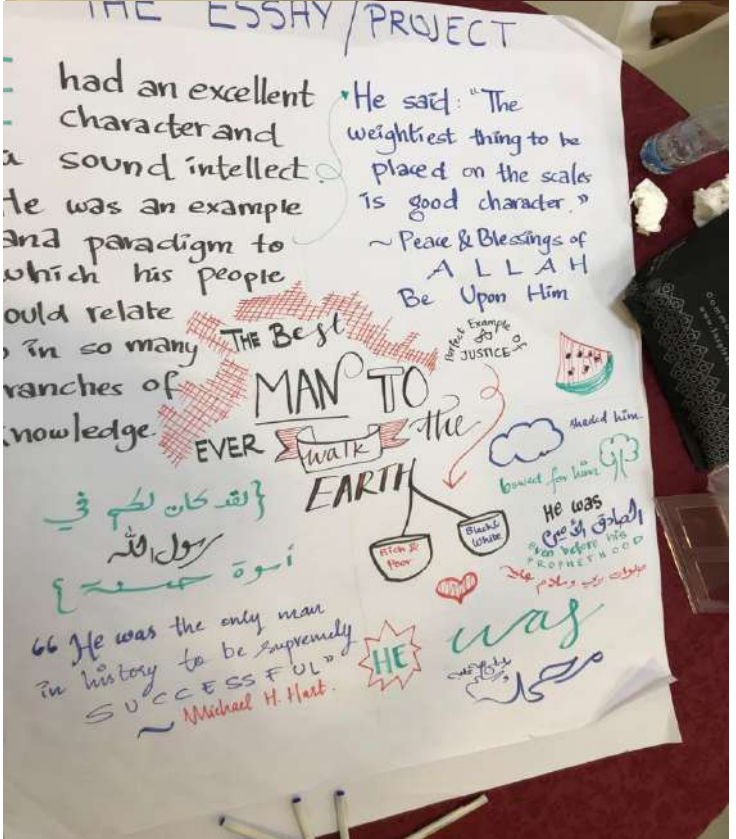 THE ESSAY/PROJECT
had an excellent
character and
a sound intellect.
He was an example
and paradigm to
which his people
ould relate
in so many
ranches of
nowledge.
He said: "The
weightiest thing to be
placed on the scales
is good character."
~ Peace & Blessings of
ALLAH
Be Upon Him
THE BEST
MAN TO
EVER walk the
EARTH
Perfect Example of
JUSTICE
Rich &
Poor
Black &
White
shaded him
bowed for him
He was
الصادق الأمين
even before his
PROPHETHOOD
صلوات ربي وسلامه عليه
{لقد كان لكم في
رسول الله
أسوة حسنة}
"He was the only man
in history to be supremely
SUCCESSFUL"
~ Michael H. Hart.
HE was
محمد